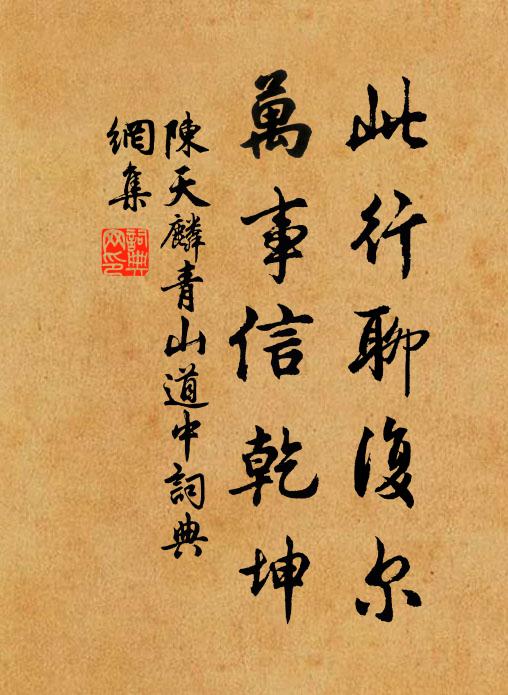 此行聊復尔
萬事信乾坤
陳天麟青山道中詞典
網集
詞典
网印